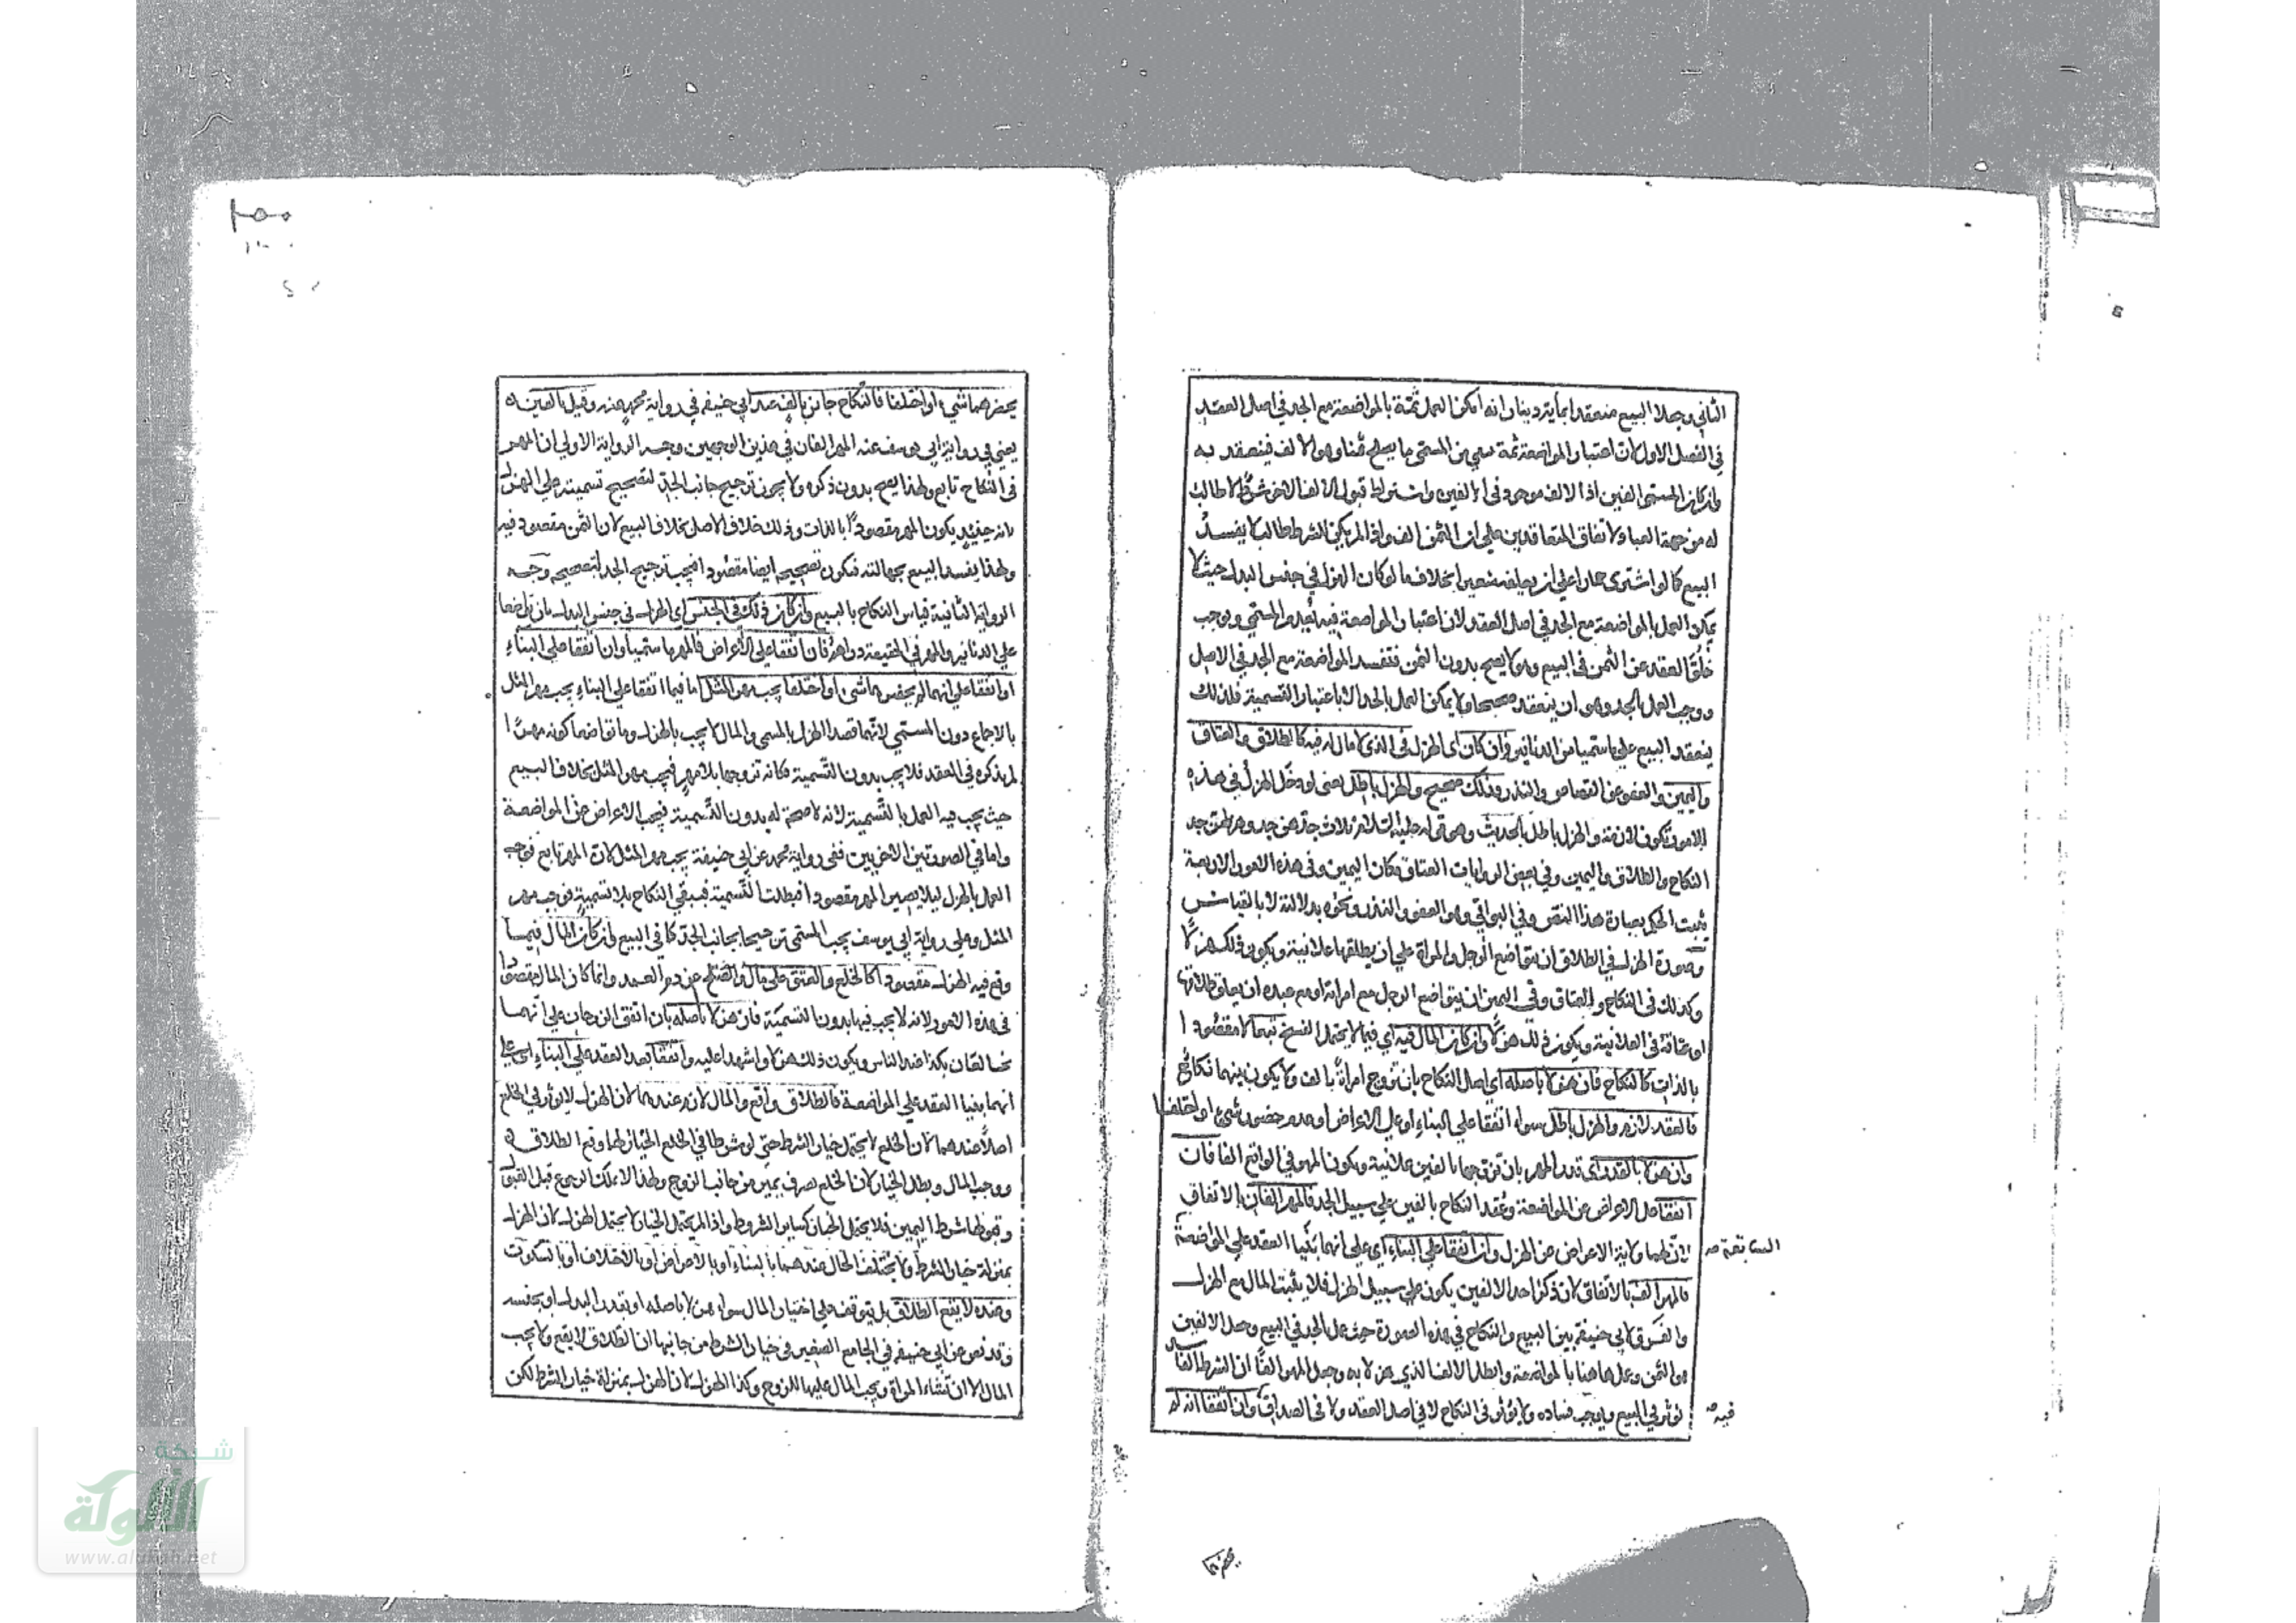 الثاني وجعلا البيع منعقدا بماية دينار انه امكن العمل ثمة بالمواضعة مع الجد في اصل العقد
في الفصل الاول لان اعتبار المواضعة ثمة من المسمى ما يصلح ثمنا وهو الالف فينعقد به
وان كان المسمى الفين اذ الالف موجود في الالفين واشتراط قبول الالف الاخر شرط لا طالب
له من جهة العباد لاتفاق المتعاقدين على ان الثمن الف واذا لم يكن للشرط طالب لا يفسد
البيع كما لو اشترى حمارا على ان يعلفه شعيرا بخلاف ما لو كان الهزل في جنس البدل حيث لا
يمكن العمل بالمواضعة مع الجد في اصل العقد لان اعتبار المواضعة فيه يعدم المسمى ويوجب
خلو العقد عن الثمن في البيع وهو لا يصح بدون الثمن فتفسد المواضعة مع الجد في الاصل
ووجب العمل بالجد وهو ان ينعقد صحيحا ولا يمكن العمل بالجد الا باعتبار التسمية فلذلك
ينعقد البيع على ما سميا من الدنانير وان كان اى الهزل في الذي لا مال له فيه كالطلاق والعتاق
واليمين والعفو عن القصاص والنذر وذلك صحيح والهزل باطل يعنى لو دخل الهزل في هذه
الامور تكون لازمة والهزل باطل بالحديث وهو قوله عليه السلام ثلاث جدهن جد وهزلهن جد
النكاح والطلاق واليمين وفي بعض الروايات العتاق مكان اليمين وفي هذه الامور الاربعة
ثبت الحكم بعبارة هذا النص وفي البواقي وهو العفو والنذر ونحوه بدلالته لا بالقياس
وصورة الهزل في الطلاق ان يتواضع الرجل والمراة على ان يطلقها علانية ويكون ذلك هزلا
وكذلك في النكاح والعتاق وفي اليمين ان يتواضع الرجل مع امراته او مع عبده ان يعلق طلاقها
او عتاقه في العلانية ويكون ذلك هزلا وان كان المال فيه اي فيما لا يحتمل الفسخ تبعا لا مقصودا
بالذات كالنكاح فان هزلا باصله اي اصل النكاح بان تزوج امراة بالف ولا يكون بينهما نكاح
فالعقد لازم والهزل باطل سواء اتفقا على البناء او على الاعراض او عدم حضور شيء او اختلفا
وان هزلا بالقدر اى قدر المهر بان تزوجها بالفين علانية ويكون المهر في الواقع الفا فان
اتفقا على الاعراض عن المواضعة وعقد النكاح بالفين على سبيل الجد فالمهر الفان بالاتفاق
لان لهما ولاية الاعراض عن الهزل وان اتفقا على البناء اي على انهما بنيا العقد على المواضعة
السابقة صح
فالمهر الف بالاتفاق لان ذكر احد الالفين يكون على سبيل الهزل فلا يثبت المال مع الهزل
والفرق لابي حنيفة بين البيع والنكاح في هذه الصورة حيث عمل بالجد في البيع وجعل الالفين
هو الثمن وعمل هاهنا بالمواضعة وابطل الالف الذي هزلا به وجعل المهر الفا ان الشرط الفاسد
يؤثر في البيع ويوجب فساده ولا يؤثر في النكاح لا في اصل العقد ولا في الصداق وان اتفقا انه لم
فيه صح
يحضرهما شيء او اختلفا فالنكاح جائز بالف عند ابي حنيفه في رواية محمد عنه وقيل بالفين
يعني في رواية ابي يوسف عنه المهر الفان في هذين الوجهين وجه الرواية الاولى ان المهر
في النكاح تابع ولهذا يصح بدون ذكره ولا يجوز ترجيح جانب الجد لتصحيح تسميته على الهزل
لانه حينئذ يكون المهر مقصودا بالذات وذلك خلاف الاصل بخلاف البيع لان الثمن مقصود فيه
ولهذا يفسد البيع بجهالته فيكون تصحيحه ايضا مقصودا فيجب ترجيح الجد لتصحيحه وجه
الرواية الثانية قياس النكاح بالبيع وان كان ذلك في الجنس اى الهزل في جنس البدل بان تواضعا
على الدنانير والمهر في الحقيقة دراهم فان اتفقا على الاعراض فالمهر ما سميا وان اتفقا على البناء
او اتفقا على انهما لم يحضرهما شيء او اختلفا يجب مهر المثل اما فيما اتفقا على البناء يجب مهر المثل
بالاجماع دون المسمى لانهما قصدا الهزل بالمسمى والمال لا يجب بالهزل وما تواضعا كونه مهرا
لم يذكره في العقد فلا يجب بدون التسمية فكانه تزوجها بلا مهر فيجب مهر المثل بخلاف البيع
حيث يجب فيه العمل بالتسمية لانه لا صحة له بدون التسمية فيجب الاعراض عن المواضعة
واما في الصورتين الاخريين ففي رواية محمد عن ابي حنيفة يجب مهر المثل لان المهر تابع فوجب
العمل بالهزل ليلا يصير المهر مقصودا فبطلت التسمية فبقي النكاح بلا تسمية فوجب مهر
المثل وعلى رواية ابي يوسف يجب المسمى ترجيحا لجانب الجد كما في البيع وان كان المال فيما
وقع فيه الهزل مقصودا كالخلع والعتق على مال والصلح عن دم العمد وانما كان المال مقصودا
في هذه الامور لانه لا يجب فيها بدون التسمية فان هزلا باصله بان اتفق الزوجان على انهما
تخالعان بكذا عند الناس ويكون ذلك هزلا واشهدا عليه واتفقا بعد العقد على البناء اي على
انهما بنيا العقد على المواضعة فالطلاق واقع والمال لازم عندهما لان الهزل لا يؤثر في الخلع
اصلا عندهما لان الخلع لا يحتمل خيار الشرط حتى لو شرطا في الخلع الخيار لها وقع الطلاق
ووجب المال وبطل الخيار لان الخلع تصرف يمين من جانب الزوج ولهذا لا يملك الرجوع قبل القبول
وقبولها شرط اليمين فلا يحتمل الخيار كساير الشروط واذا لم يحتمل الخيار لا يحتمل الهزل لان الهزل
بمنزلة خيار الشرط ولا يختلف الحال عندهما بالبناء او بالاعراض او بالاختلاف او بالسكوت
وعنده لا يقع الطلاق بل يتوقف على اختيار المال سواء هزلا باصله او بقدر البدل او بجنسه
وقد نص عن ابي حنيفه في الجامع الصغير في خيار الشرط من جانبها ان الطلاق لا يقع ولا يجب
المال الا ان تشاء المراة ويجب المال عليها للزوج وكذا الهزل لان الهزل بمنزلة خيار الشرط لكن
شبكة
الألوكة
www.alukah.net